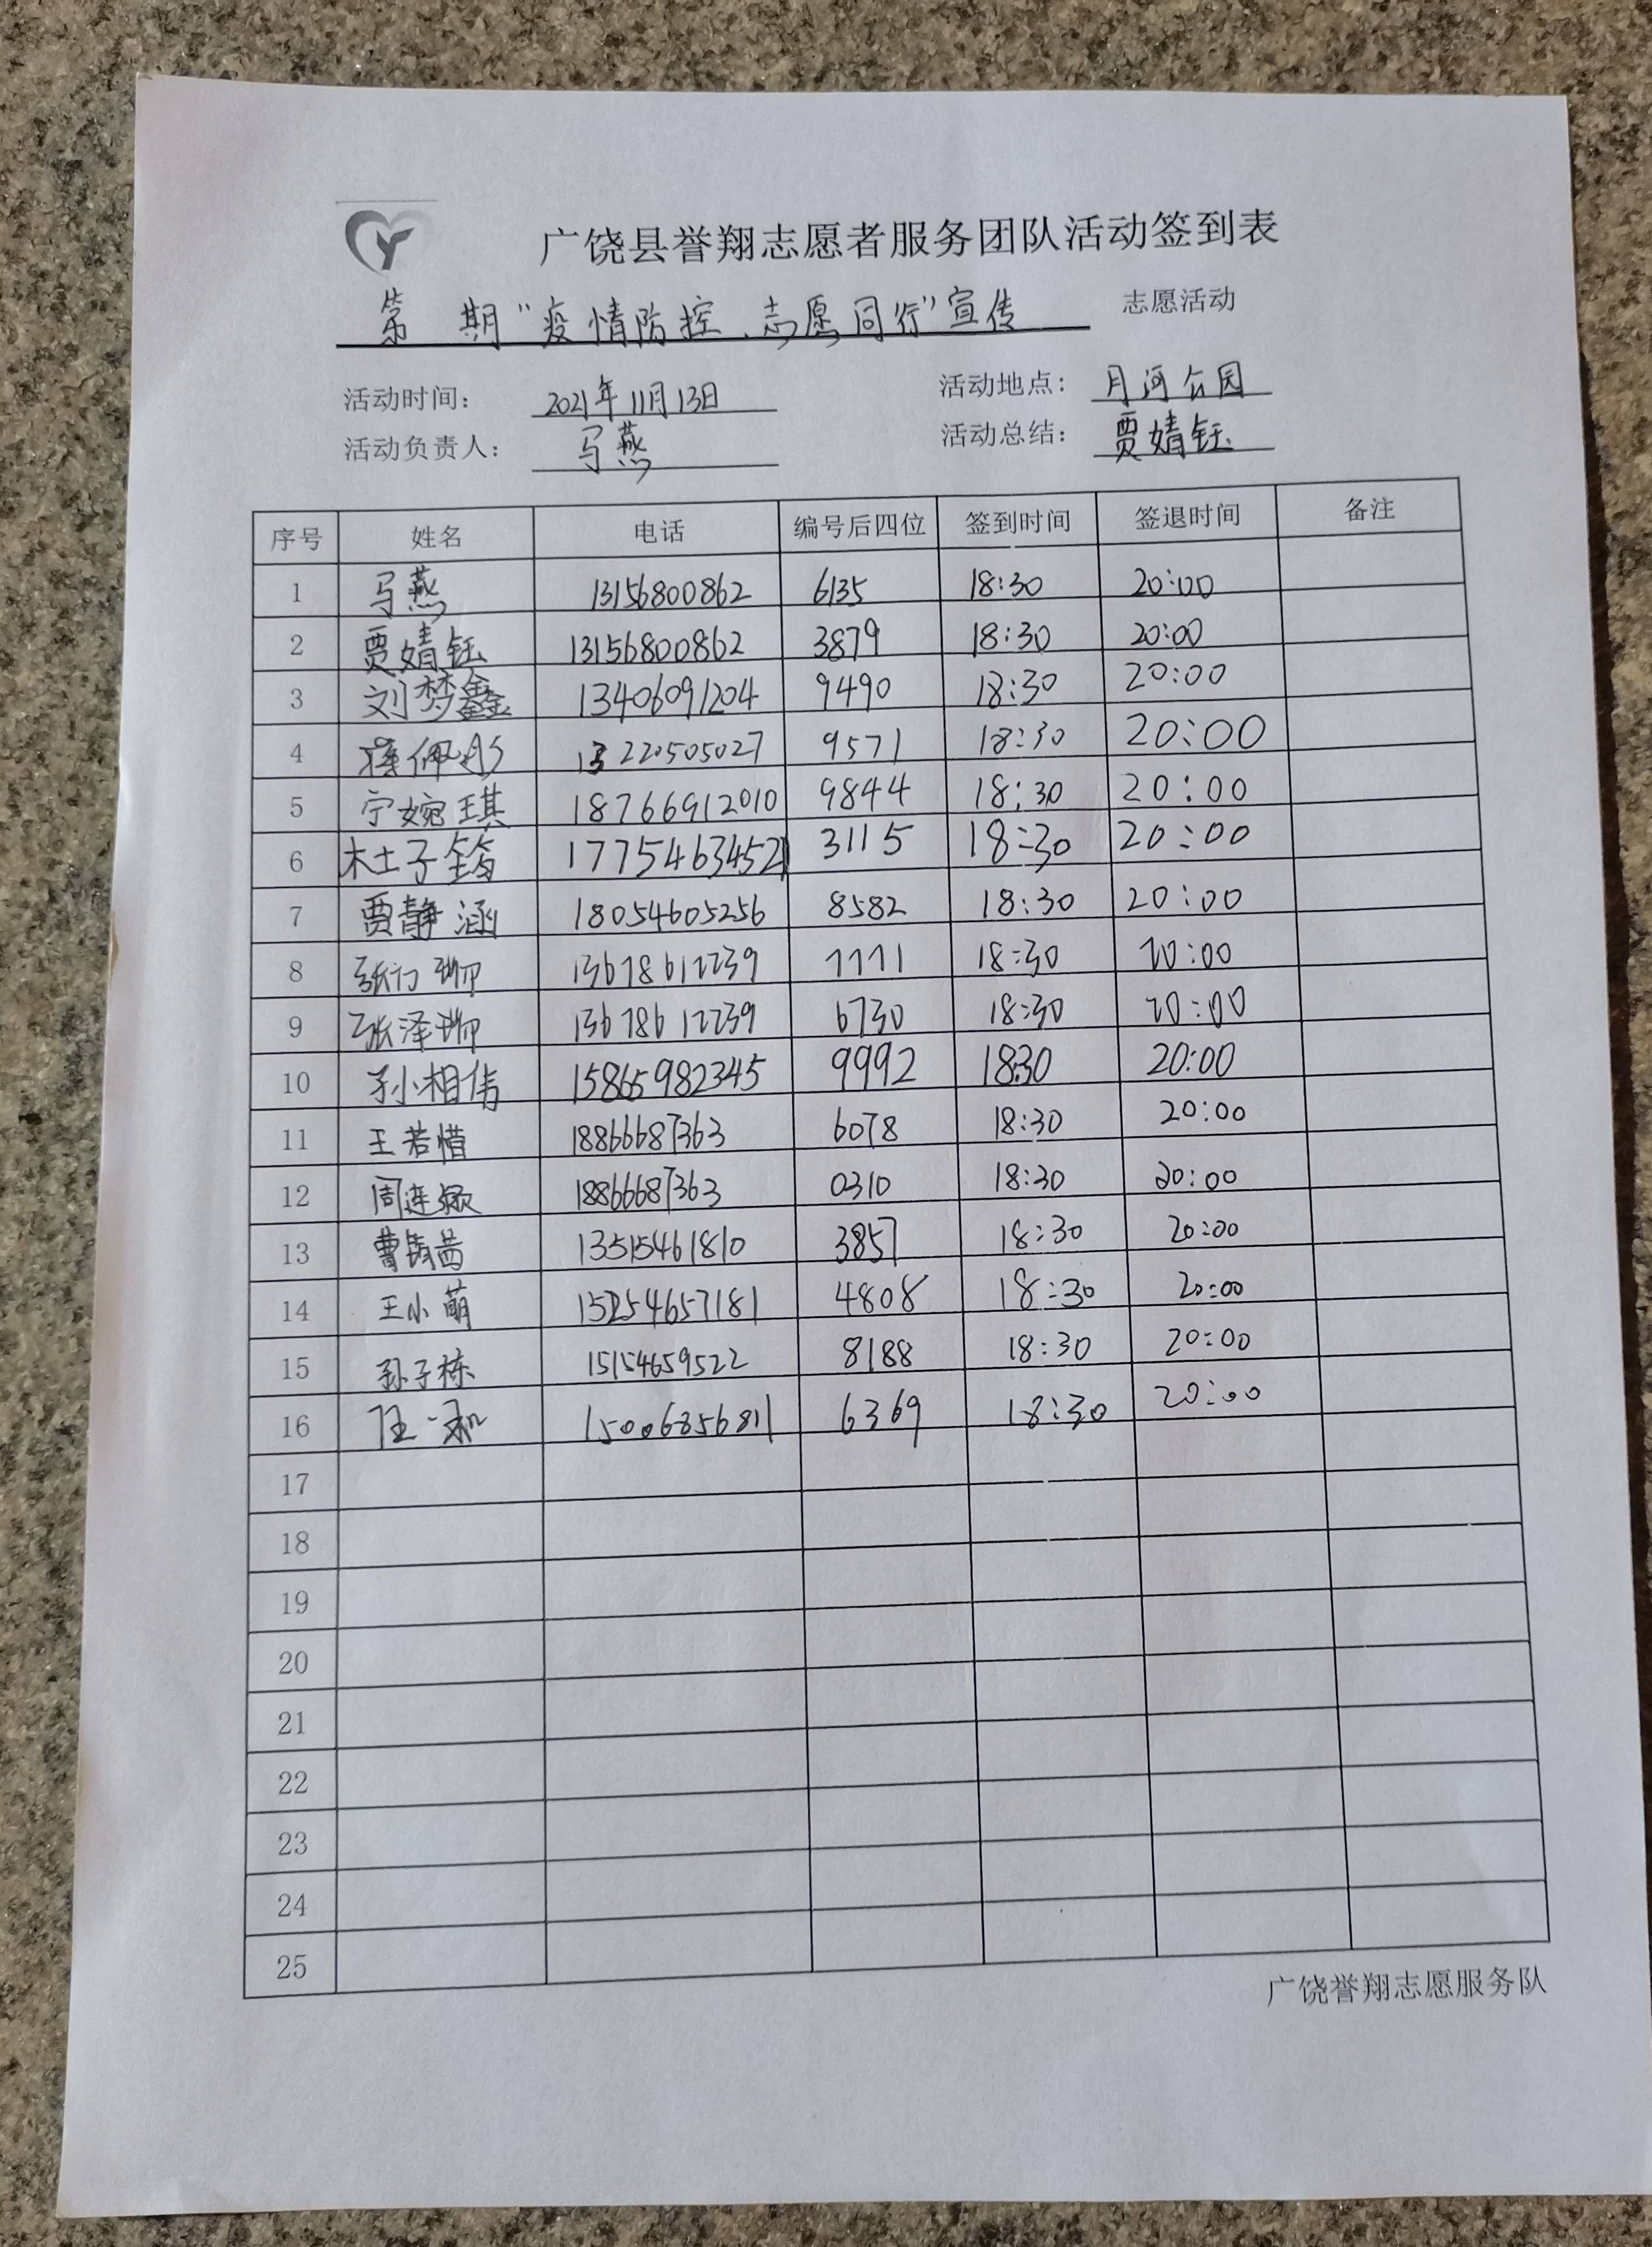 广饶县誉翔志愿者服务团队活动签到表
第 期“疫情防控、志愿同行”宣传 志愿活动
活动时间： 2021年11月13日 活动地点： 月河公园
活动负责人： 马燕 活动总结： 贾婧钰
序号 姓名 电话 编号后四位 签到时间 签退时间 备注
1 马燕 13156800862 6135 18:30 20:00
2 贾婧钰 13156800862 3879 18:30 20:00
3 刘梦鑫 13406091204 9490 18:30 20:00
4 蒋佩彤 13220505027 9571 18:30 20:00
5 宁婉琪 18766912010 9844 18:30 20:00
6 杜子筠 17754634521 3115 18:30 20:00
7 贾静涵 18054605256 8582 18:30 20:00
8 13678612239 18:30 20:00
9 张泽珊 13678612239 6730 18:30 20:00
10 孙相伟 15865982345 9992 18:30 20:00
11 王若惜 18866687363 6078 18:30 20:00
12 周连颖 18866687363 0310 18:30 20:00
13 曹 茜 13515461810 3857 18:30 20:00
14 王小萌 15254657181 4808 18:30 20:00
15 孙子栋 15154659522 8188 18:30 20:00
16 15006856811 6369 18:30 20:00
17
18
19
20
21
22
23
24
25
广饶誉翔志愿服务队